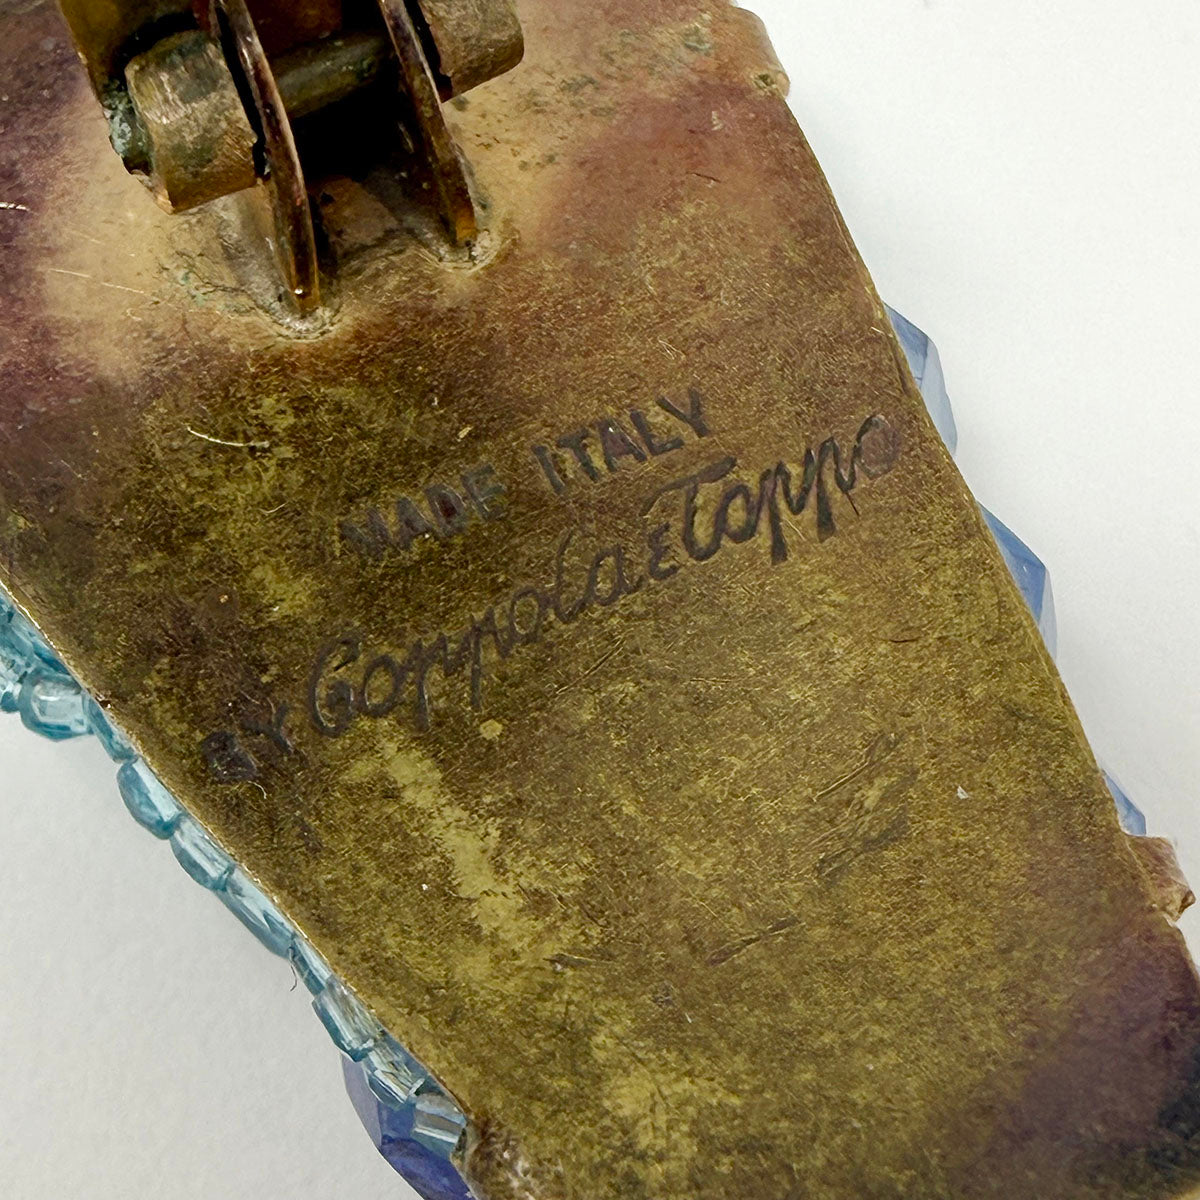 MADE ITALY
BY Coppola E Toppo